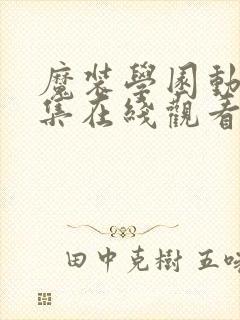 魔裝學園動
集在綫觀看
田中克樹 五